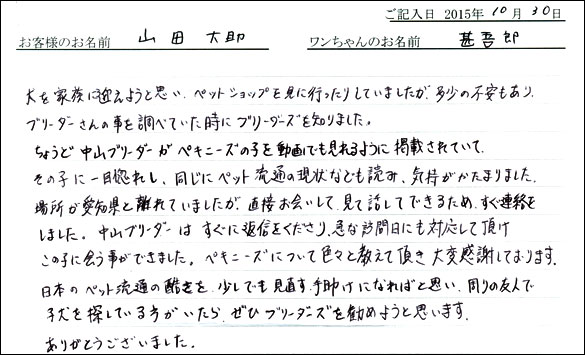 ご記入日 2015年 10月 30日
お客様のお名前 山田 大助 ワンちゃんのお名前 甚吾郎
犬を家族に迎えようと思い、ペットショップを見に行ったりしていましたが、多少の不安もあり、
ブリーダーさんの事を調べていた時にブリーダーズを知りました。
ちょうど中山ブリーダーがペキニーズの子を動画でも見れるように掲載されていて、
その子に一目惚れし、同じにペット流通の現状なども読み、気持がかたまりました。
場所が愛知県と離れていましたが、直接お会いして、見て話してできるため、すぐ連絡を
しました。中山ブリーダーはすぐに返信をくださり、急な訪問日にも対応して頂け
この子に会う事ができました。ペキニーズについて色々と教えて頂き大変感謝しております。
日本のペット流通の酷さを、少しでも見直す手助けになればと思い、周りの友人で
子犬を探している方がいたら、ぜひブリーダーズを勧めようと思います。
ありがとうございました。